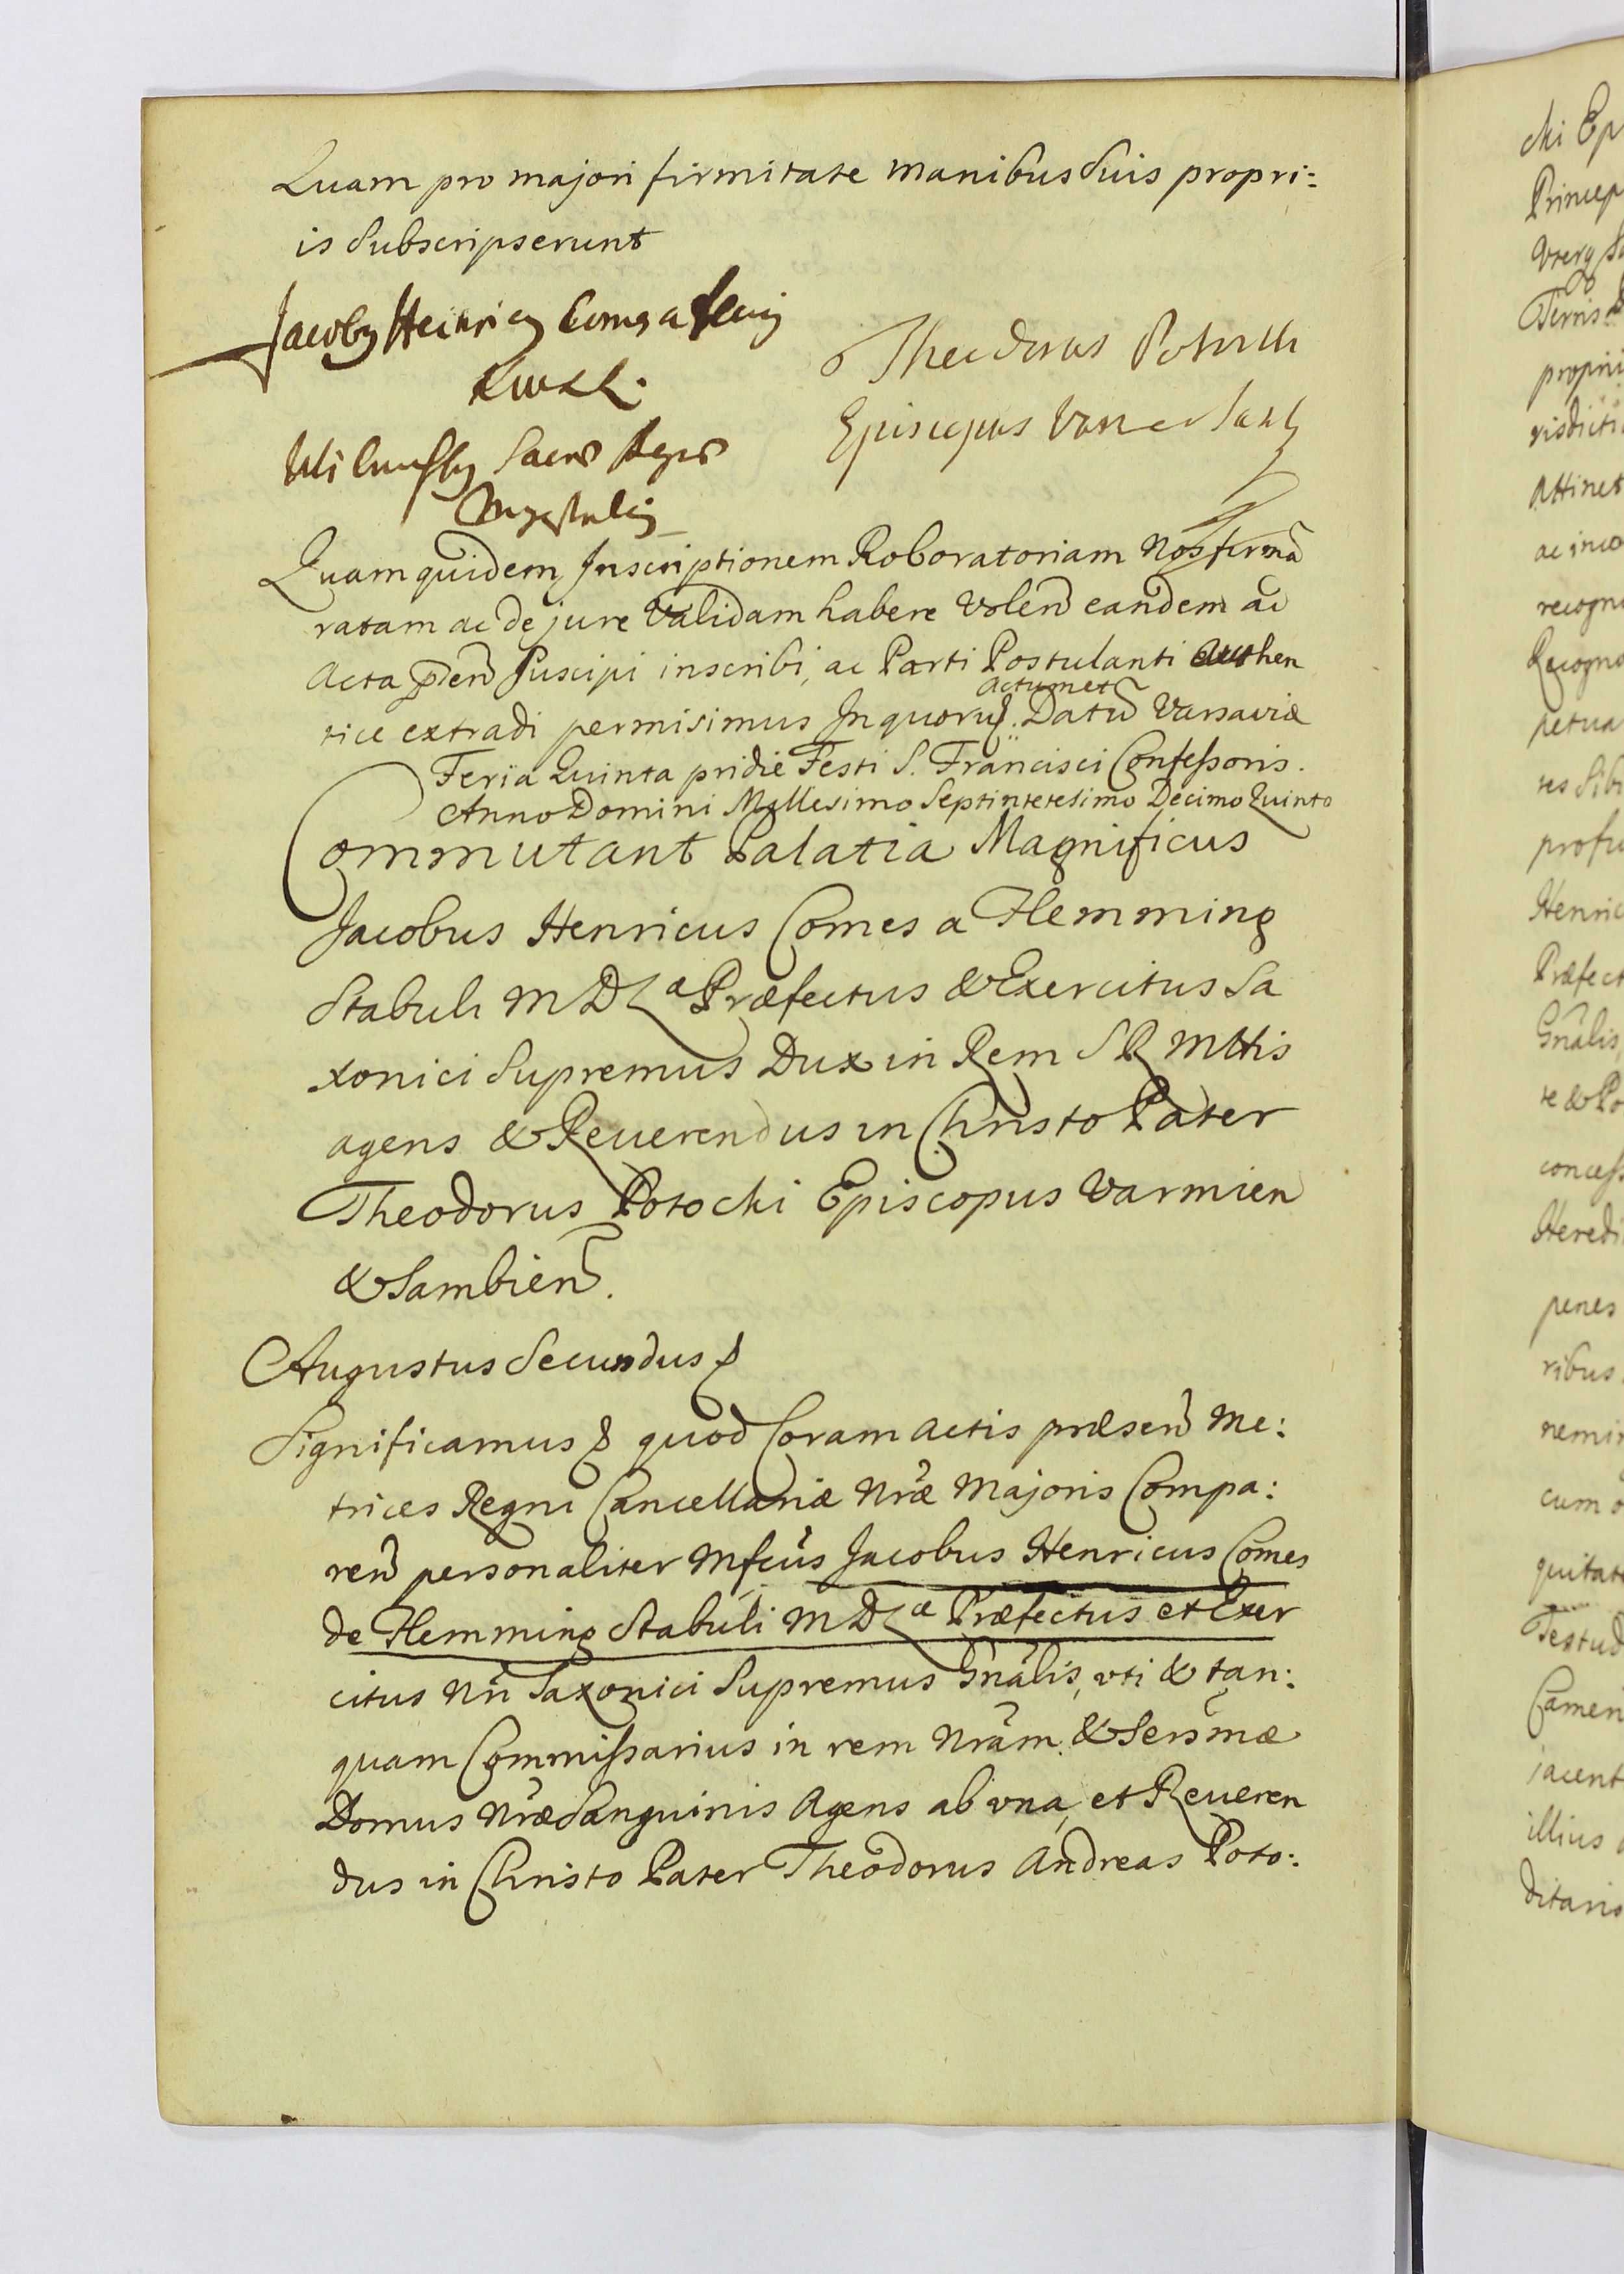 Quam pro majori firmitate manibus Suis propri:
is Subscripserunt
Jacobg Heinricg Comes a
Theodorus Potocki
Episcopus
Sacr
Quam quidem Inscriptionem Roboratoriam Nos firmã
ratam ac de jure Validam habere Volen̄ eandem ac
Acta p̄den̄ Suscipi inscribi, ac Parti Postulanti authen
actum et
tice extradi permisimus In quoru. Datu Varsaviæ
Feria Quinta pridie Festi S. Francisci Confessoris.
Anno Domini Millesimo Septintetesimo Decimo Quinto
Commutant Palatia Magnificus
Jacobus Henricus Comes a Flemming
Stabuli M D L æ Præfectus & Exercitus Sa
xonici Supremus Dux in Rem S R Mttis
agens & Reuerendus in Christo Pater
Theodorus Potocki Episcopus Varmien
& Sambien.
Augustus Secundus &
Significamus & quod Coram Actis præsen̄ Me:
trices Regni Cancellariæ Nræ Majoris Compa:
ren̄ personaliter Mfcus Jacobus Henricus Comes
de Flemming Stabuli M D L æ Præfectus et Exer
citus Nri Saxonici Supremus Gnalis, vti & tan:
quam Commissarius in rem Nram & Sersmæ
Domus Nræ Sanguinis Agens ab vna, et Reueren
dus in Christo Pater Theodorus Andreas Poto:
cki Ep
Princep
Terris
propri
risdicti
Attinet
ac inco
recogn
Recogno
petua
res Sibi
profu
Henric
Præfect
Gnalis
te & Po
concess
Heredi
penes
ribus
nemin
cum o
quitate
Testud
Camen
jacent
illius
ditario